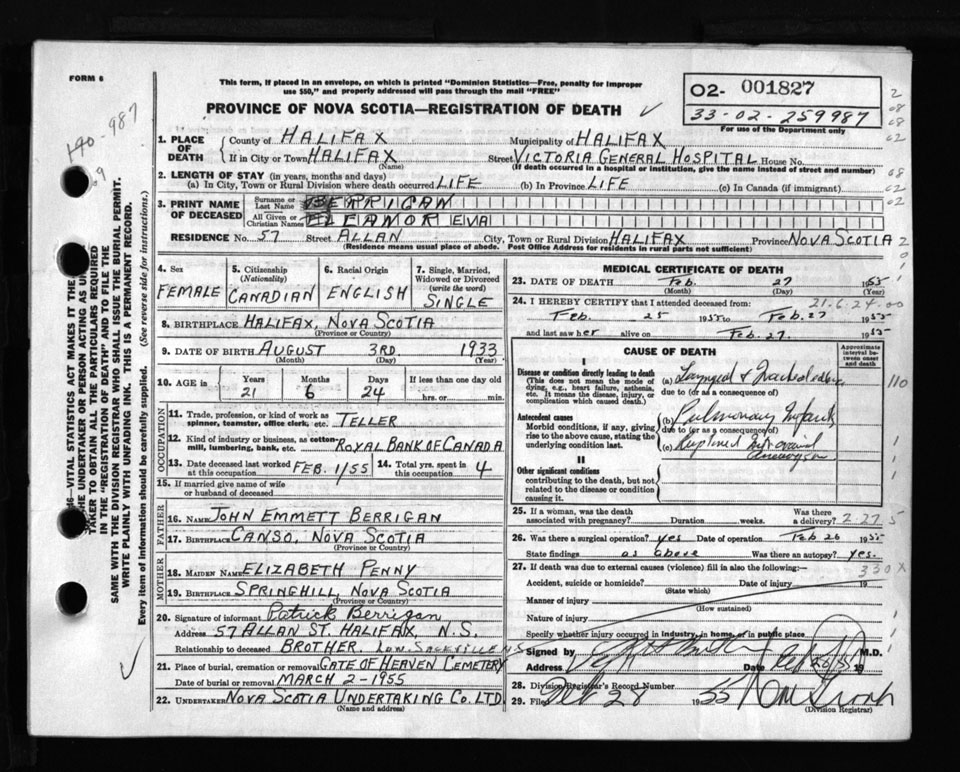 FORM 6
This form, if placed in an envelope, on which is printed "Dominion Statistics—Free, penalty for improper
use $50," and properly addressed will pass through the mail "FREE"
PROVINCE OF NOVA SCOTIA—REGISTRATION OF DEATH
02- 001827
33-02-259987
For use of the Department only
190-987
69
1. PLACE OF DEATH
County of HALIFAX Municipality of HALIFAX
If in City or Town HALIFAX Street VICTORIA GENERAL HOSPITAL House No.
(Name) (If death occurred in a hospital or institution, give the name instead of street and number)
2. LENGTH OF STAY (in years, months and days)
(a) In City, Town or Rural Division where death occurred LIFE (b) In Province LIFE (c) In Canada (if immigrant)
3. PRINT NAME OF DECEASED
Surname or Last Name BERRIGAN
All Given or Christian Names ELEANOR EVA
RESIDENCE No. 57 Street ALLAN City, Town or Rural Division HALIFAX Province NOVA SCOTIA
(Residence means usual place of abode. Post Office Address for residents in rural parts not sufficient)
4. Sex FEMALE
5. Citizenship (Nationality) CANADIAN
6. Racial Origin ENGLISH
7. Single, Married, Widowed or Divorced (write the word) SINGLE
8. BIRTHPLACE HALIFAX, NOVA SCOTIA
(Province or Country)
9. DATE OF BIRTH AUGUST 3RD 1933
(Month) (Day) (Year)
10. AGE in Years 21 Months 6 Days 24 If less than one day old hrs. or min.
OCCUPATION
11. Trade, profession, or kind of work as spinner, teamster, office clerk, etc. TELLER
12. Kind of industry or business, as cotton-mill, lumbering, bank, etc. ROYAL BANK OF CANADA
13. Date deceased last worked at this occupation FEB. 1/55 14. Total yrs. spent in this occupation 4
15. If married give name of wife or husband of deceased
FATHER
16. NAME JOHN EMMETT BERRIGAN
17. BIRTHPLACE CANSO, NOVA SCOTIA
(Province or Country)
MOTHER
18. MAIDEN NAME ELIZABETH PENNY
19. BIRTHPLACE SPRINGHILL, NOVA SCOTIA
(Province or Country)
20. Signature of informant Patrick Berrigan
Address 57 ALLAN ST. HALIFAX, N.S.
Relationship to deceased BROTHER. LOW. SACKVILLE NS
21. Place of burial, cremation or removal GATE OF HEAVEN CEMETERY
Date of burial or removal MARCH 2-1955
22. UNDERTAKER NOVA SCOTIA UNDERTAKING CO. LTD.
(Name and address)
MEDICAL CERTIFICATE OF DEATH
23. DATE OF DEATH Feb. 27 1955
(Month) (Day)
24. I HEREBY CERTIFY that I attended deceased from: 21.6.24.00
Feb. 25 1955 to Feb. 27 1955
and last saw her alive on Feb. 27. 1955
CAUSE OF DEATH
Approximate interval between onset and death
I
Disease or condition directly leading to death
(This does not mean the mode of dying, e.g., heart failure, asthenia, etc. It means the disease, injury, or complication which caused death.)
(a) Laryngeal &
due to (or as a consequence of)
Antecedent causes
Morbid conditions, if any, giving rise to the above cause, stating the underlying condition last.
(b) Pulmonary Infarcts
due to (or as a consequence of)
(c) Ruptured Aneurysm
II
Other significant conditions
contributing to the death, but not related to the disease or condition causing it.
110
25. If a woman, was the death associated with pregnancy? Duration weeks. Was there a delivery? 2-27 5
26. Was there a surgical operation? yes Date of operation Feb 26 1955
State findings as above Was there an autopsy? yes.
27. If death was due to external causes (violence) fill in also the following:— 330X
Accident, suicide or homicide? Date of injury 19
(State which)
Manner of injury
(How sustained)
Nature of injury
Specify whether injury occurred in industry, in home, or in public place
Signed by M.D.
Address Date 19
28. Division Registrar's Record Number
29. Filed Feb 28 1955
(Division Registrar)
46—VITAL STATISTICS ACT MAKES IT THE
THE UNDERTAKER OR PERSON ACTING AS UN
TAKER TO OBTAIN ALL THE PARTICULARS REQUIRED
IN THE "REGISTRATION OF DEATH" AND TO FILE THE
SAME WITH THE DIVISION REGISTRAR WHO SHALL ISSUE THE BURIAL PERMIT.
WRITE PLAINLY WITH UNFADING INK. THIS IS A PERMANENT RECORD.
Every item of information should be carefully supplied. (See reverse side for instructions.)